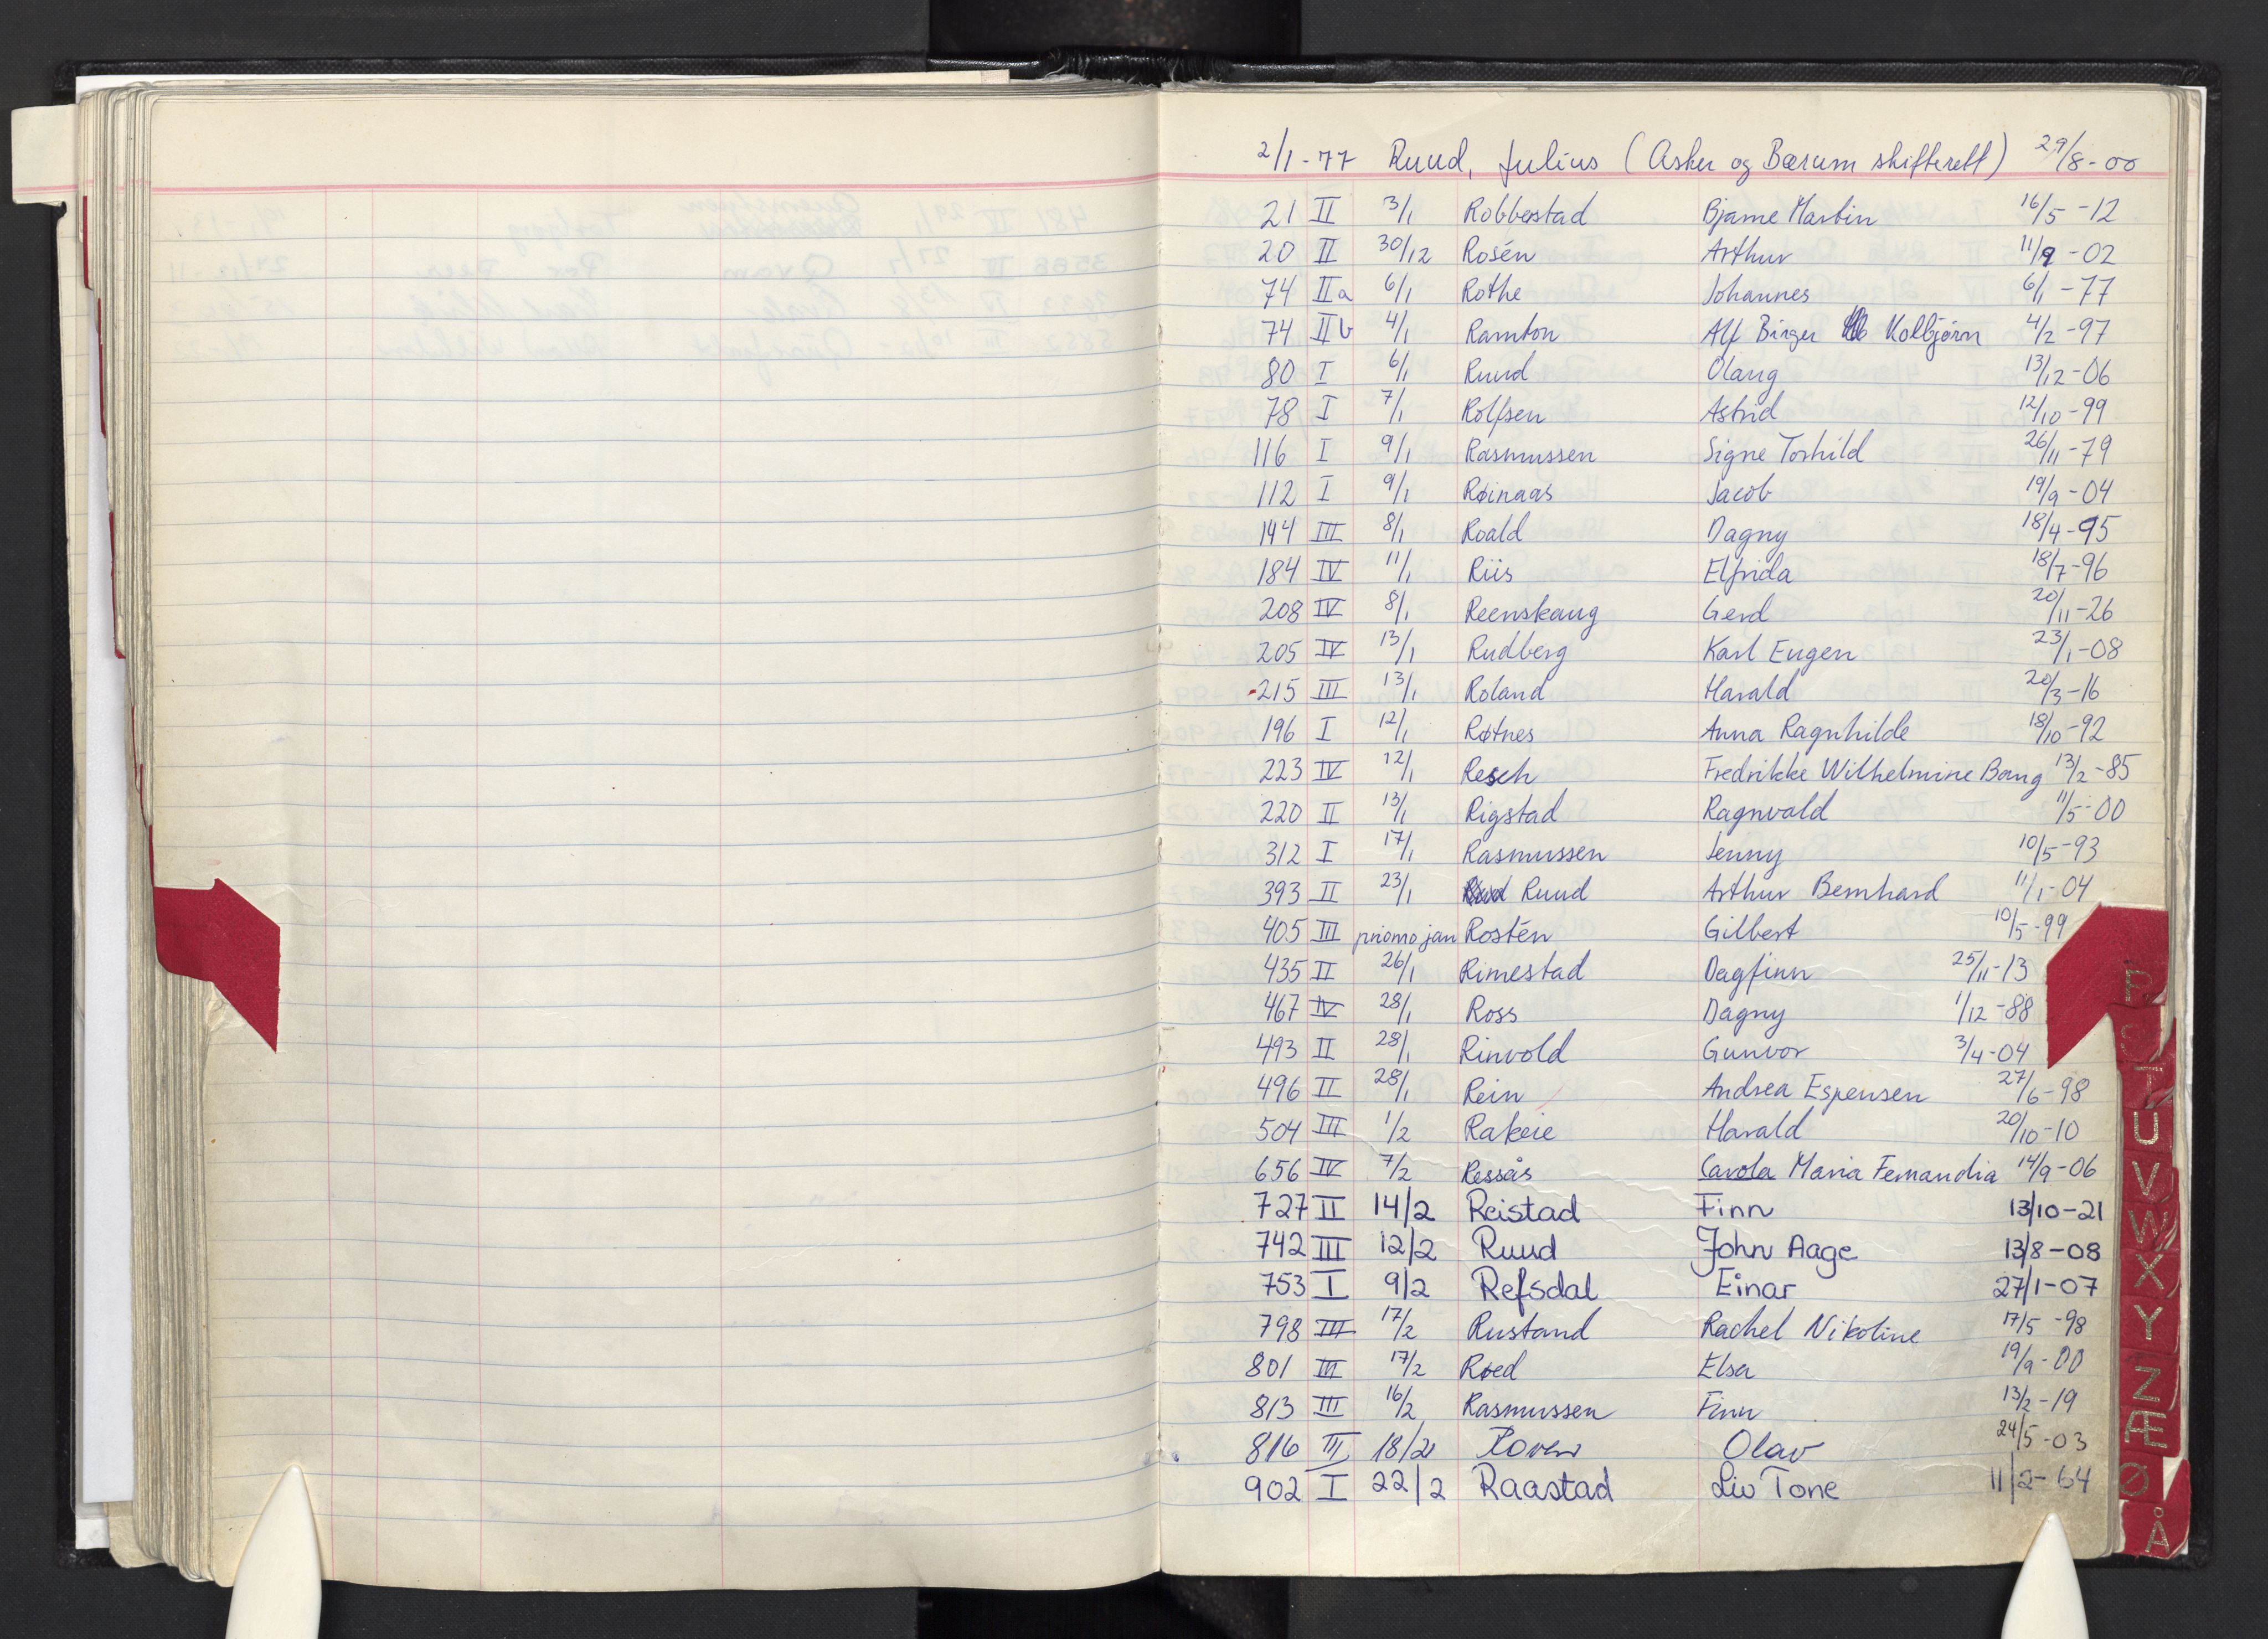 2/1-77 Ruud, Julius (Asker og Bærum skifterett) 29/8-00
21 II 3/1 Robberstad Bjarne Martin 16/5-12
20 II 30/12 Rosén Arthur 11/9-02
74 IIa 6/1 Rothe Johannes 6/1-77
74 IIb 4/1 Ramton Alf Birger Kolbjørn 4/2-97
80 I 6/1 Ruud Olaug 13/12-06
78 I 7/1 Rolfsen Astrid 12/10-99
116 I 9/1 Rasmussen Signe Torhild 26/11-79
112 I 9/1 Røinaas Jacob 19/9-04
144 III 8/1 Roald Dagny 18/4-95
184 IV 11/1 Riis Elfrida 18/7-96
208 IV 8/1 Reenskaug Gerd 20/11-26
205 IV 13/1 Rudberg Karl Eugen 23/1-08
215 III 13/1 Roland Harald 20/3-16
196 I 12/1 Røtnes Anna Ragnhilde 18/10-92
223 IV 12/1 Resch Fredrikke Wilhelmine Bang 13/2-85
220 II 13/1 Rigstad Ragnvald 11/5-00
312 I 17/1 Rasmussen Jenny 10/5-93
393 II 23/1 Ruud Arthur Bernhard 11/1-04
405 III primo jan Rostén Gilbert 10/5-99
435 II 26/1 Rimestad Dagfinn 25/11-13
467 IV 28/1 Ross Dagny 1/12-88
493 II 28/1 Rinvold Gunvor 3/4-04
496 II 28/1 Rein Andrea Espensen 27/6-98
504 III 1/2 Rakeie Harald 20/10-10
656 IV 7/2 Ressås Carola Maria Fernandia 14/9-06
727 II 14/2 Reistad Finn 13/10-21
742 III 12/2 Ruud John Aage 13/8-08
753 I 9/2 Refsdal Einar 27/1-07
798 III 17/2 Rustand Rachel Nikoline 17/5-98
801 III 17/2 Røed Elsa 19/9-00
813 III 16/2 Rasmussen Finn 13/2-19
816 III 18/2 Roven Olav 24/5-03
902 I 22/2 Raastad Liv Tone 11/2-64
U
V
W
X
Y
Z
Æ
Ø
Å